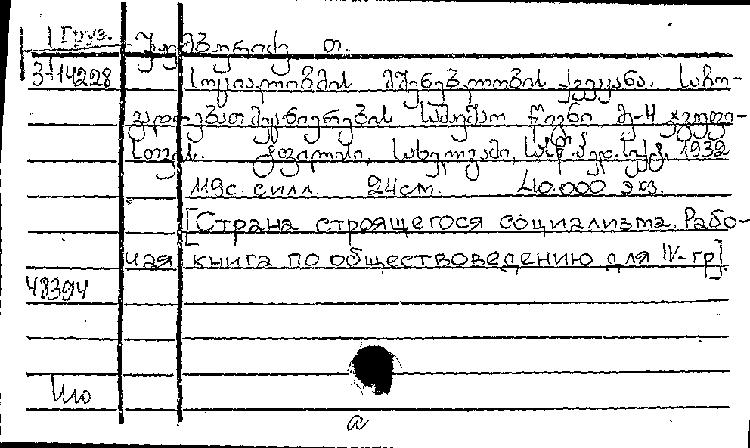 Груз.
შუმბურიძე თ.
3-14228
სოციალიზმის მშენებლობის ქვეყანა. საზო-
გადოებათმეცნიერების სამუშაო წიგნი მე-4 ჯგუფი-
სთვის. ტფილისი, სახელგამი, 1932
119с. с илл. 24см. 40.000 экз.
[Страна строящегося социализма. Рабо-
чая книга по обществоведению для IV-гр].
48394
а